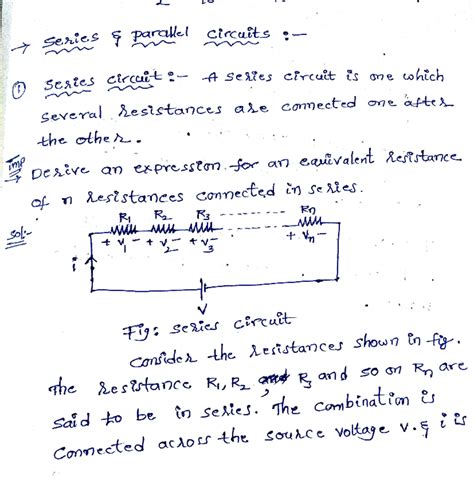 → Series & parallel circuits :-
① Series circuit :- A series circuit is one which
several resistances are connected one after
the other.
Imp Derive an expression for an equivalent resistance
of n resistances connected in series.
Sol:-
R1 R2 R3 Rn
+ V1 - + V2 - + V3 - + Vn -
i
V
Fig: series circuit
Consider the resistances shown in fig.
The resistance R1, R2, R3 and so on Rn are
said to be in series. The combination is
Connected across the source voltage V. & i is